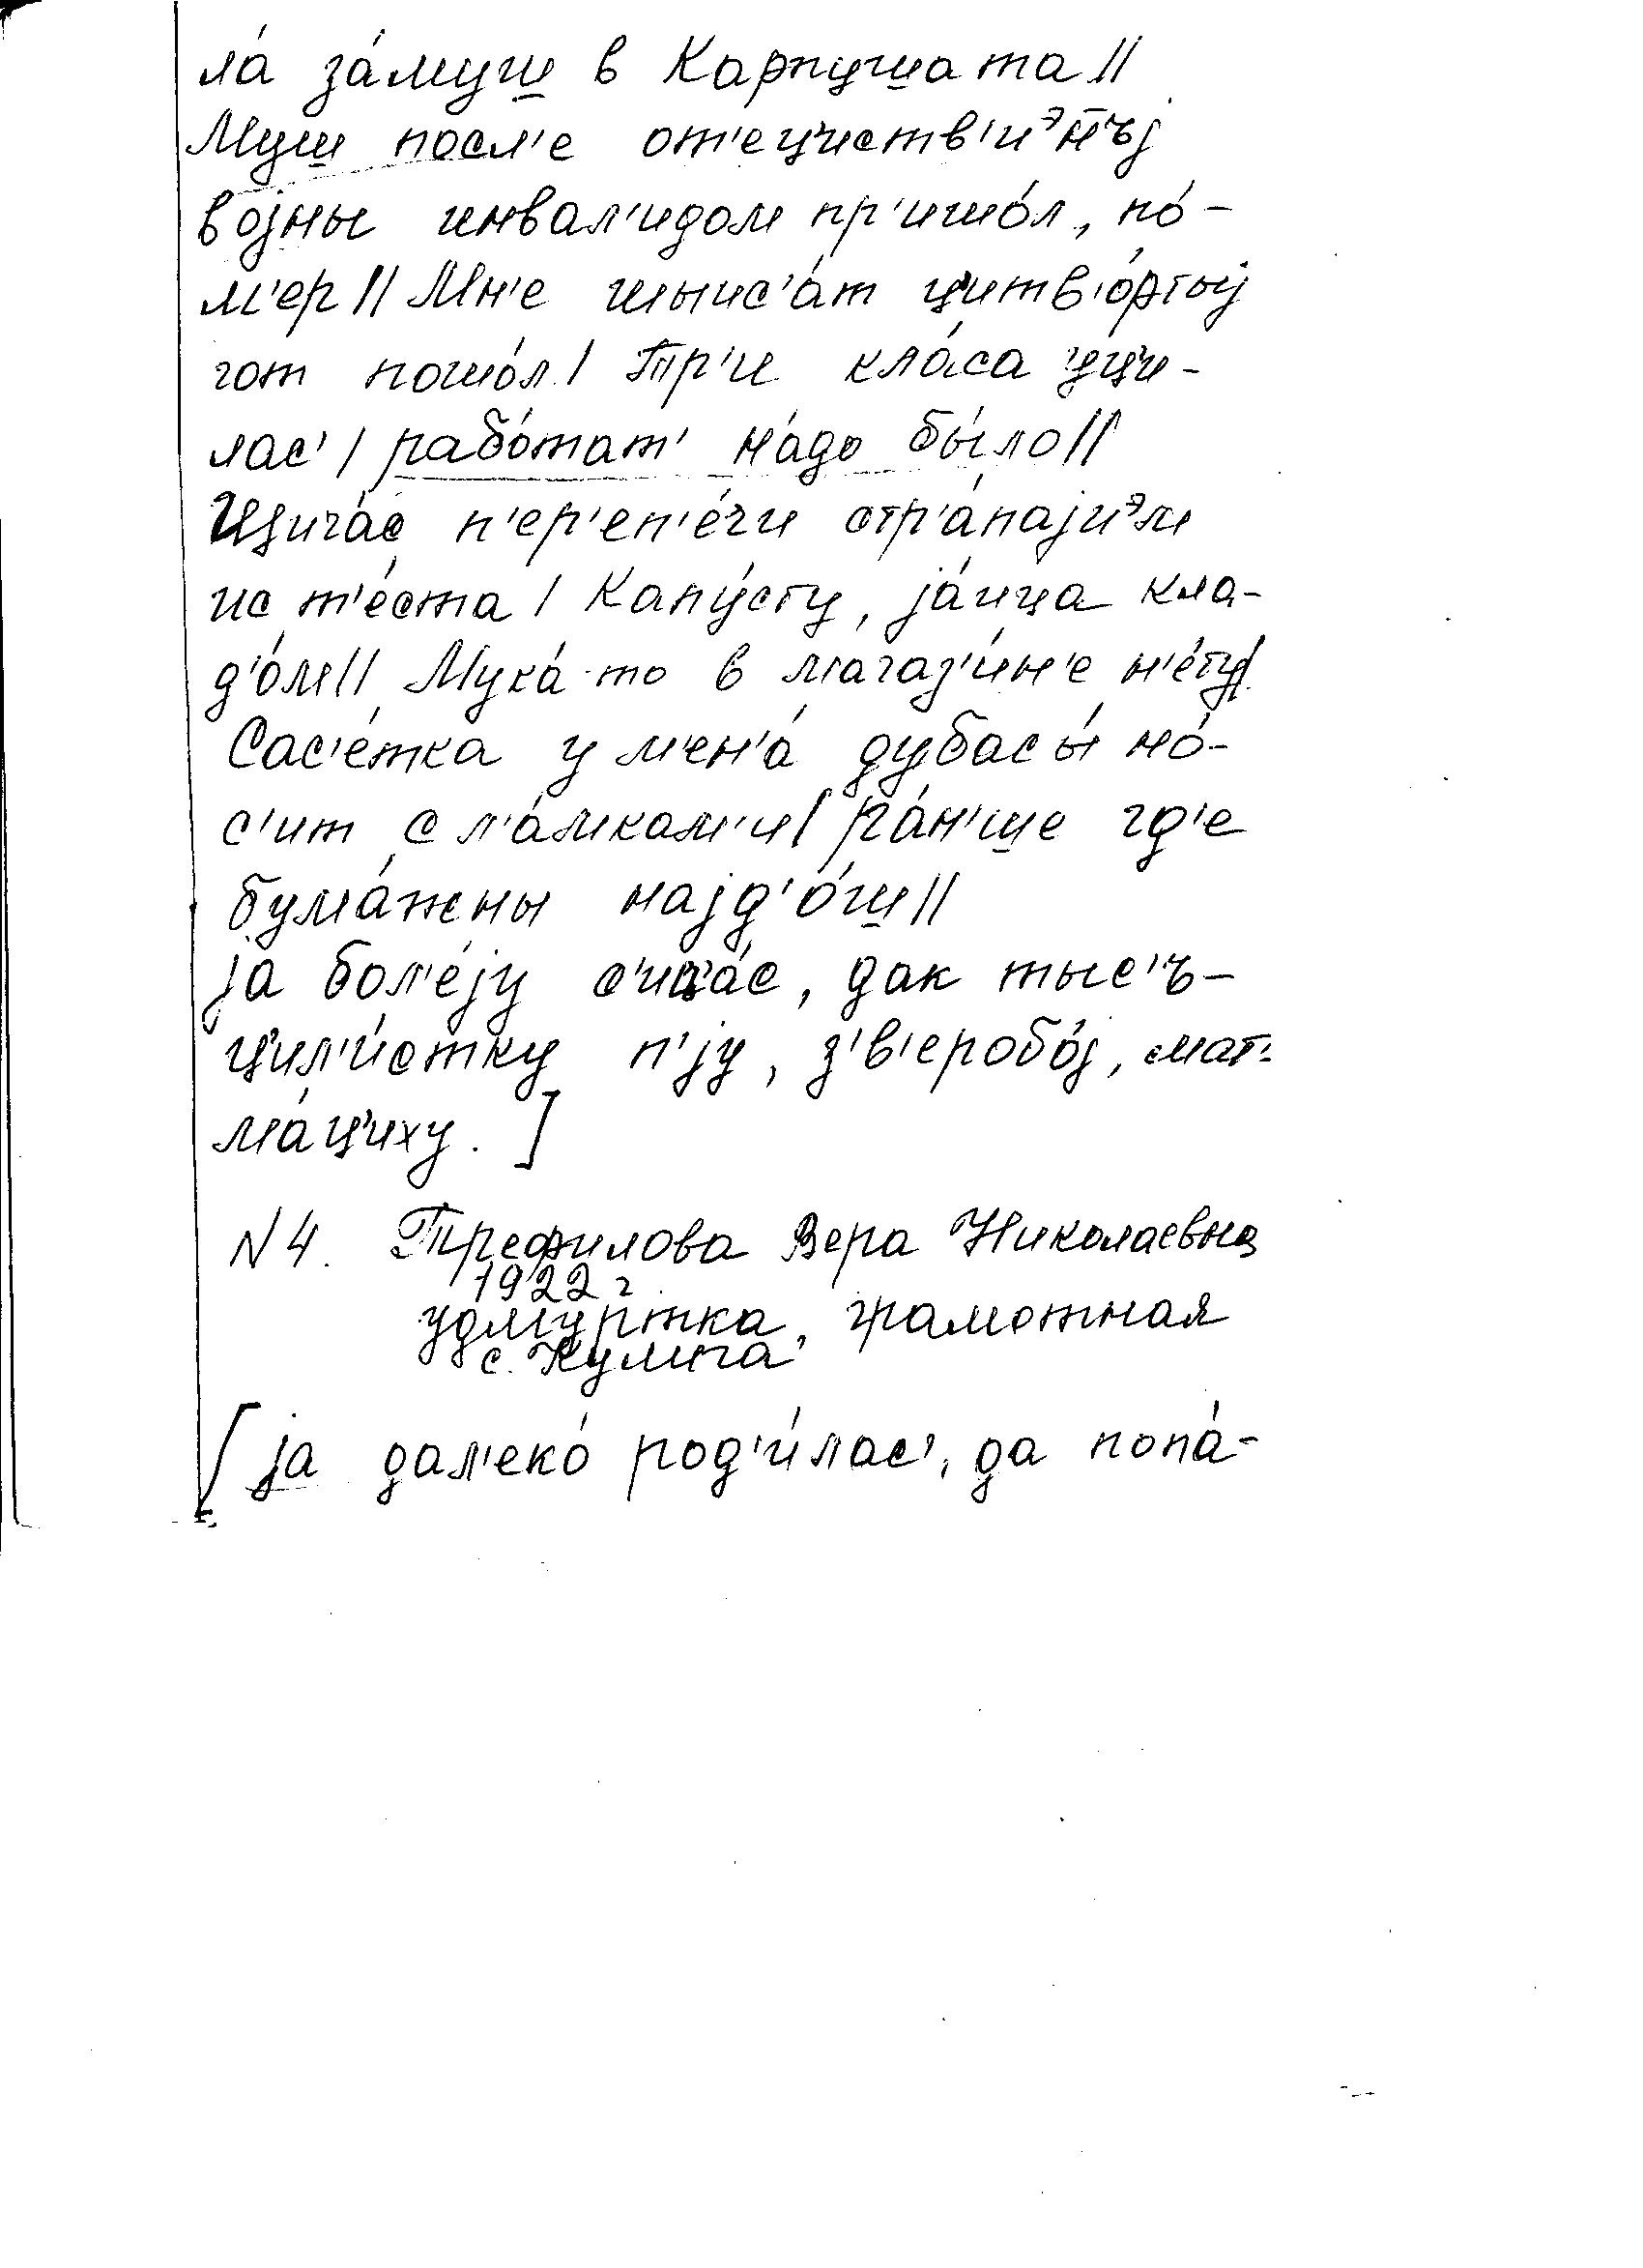 ла́ за́муш в Карпушата//
Муш посл'е от'ециств'иэн̄ъј
војны инвал'идом пр'ишо́л, по́-
м'ер// Мн'е шыис'а́т цитв'о́ртыј
гот пошо́л/ Тр'и кла́са уци-
лас'/ рабо́тат' на́до бы́ло//
Щича́с п'ер'еп'е́чи стр'а́пајиэм
ис т'е́ста/ Капу́сту, ја́ица кла-
д'о́м// Мука́-то в магаз'и́н'е н'е́ту/
Сас'е́тка у м'ен'а́ дубасы́ но́-
с'ит с л'а́мкам'и/ ра́н'ше гд'е
бума́жны најд'о́ш//
ја бол'е́ју с'ица́с, дак тыс'ъ-
цил'и́стку п'ју, з'в'еробо́ј, мат'-
ма́ц'иху.]
N4. Трефилова Вера Николаевна
1922 г
удмуртка, грамотная
с. Кулига
[ја дал'еко́ род'и́лас', да попа́-